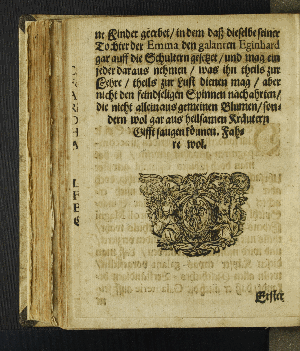 ne Kinder geerbet / in dem daß dieselbe seiner
Tochter der Emma den galanten Eginhard
gar auff die Schultern gesetzet / und mag ein
jeder daraus nehmen / was ihn theils zur
Lehre / theils zur Lust dienen mag / aber
nicht den feindseligen Spinnen nachahrten /
die nicht allein aus gemeinen Blumen / son-
dern wol gar aus heilsamen Kräutern
Gifft saugen können. Fah-
re wol.
Erster